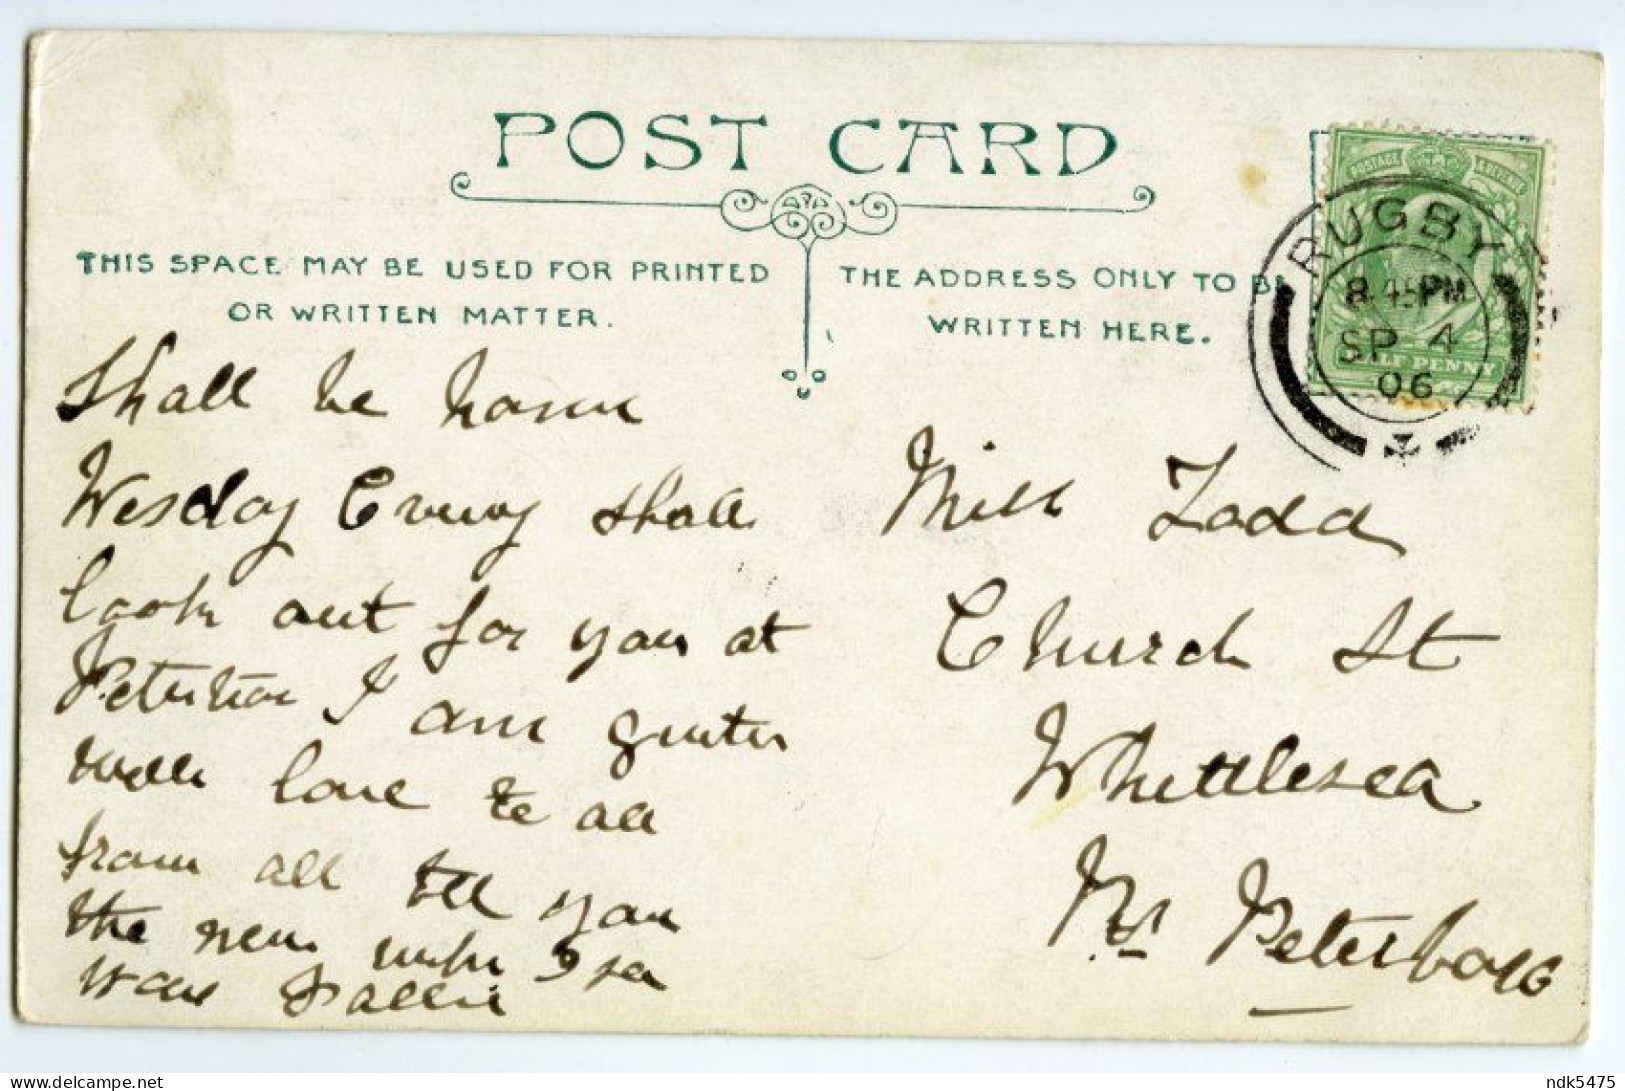 POST CARD
THIS SPACE MAY BE USED FOR PRINTED
OR WRITTEN MATTER.
THE ADDRESS ONLY TO BE
WRITTEN HERE.
POSTAGE & REVENUE
HALF PENNY
RUGBY
8.45 PM
SP 4
06
Shall be home
Wesday Evening shall
look out for you at
Peterboro I am quite
well love to all
from all tell you
the news when I see
Sallie
Miss Todd
Church St
Whittlesea
Nr Peterboro
ndk5475